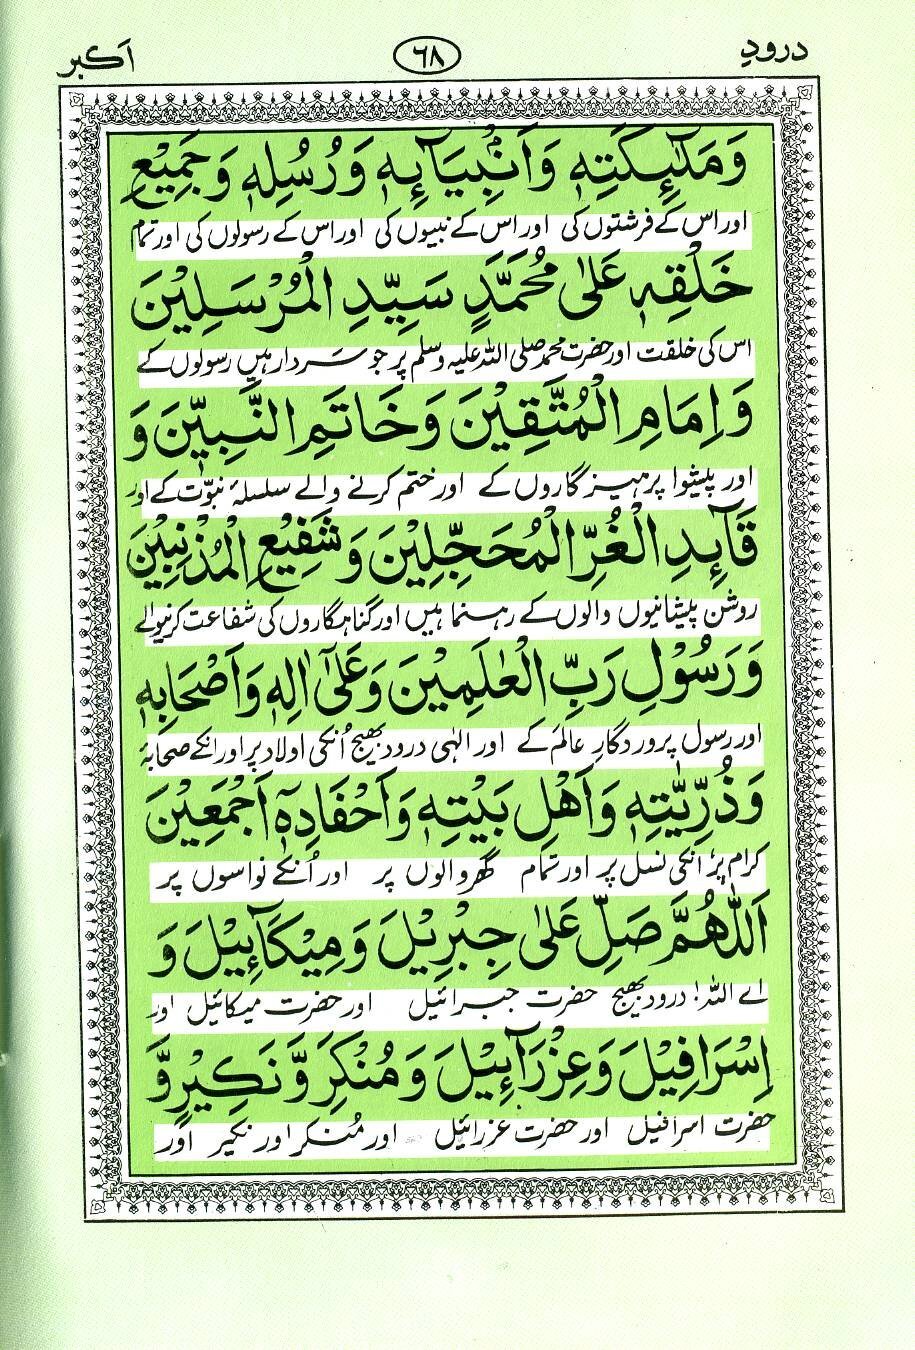 درودِ ٦٨ اَکبر
وَمَلٰٓئِكَتِهٖ وَاَنْۢبِيَآئِهٖ وَرُسُلِهٖ وَجَمِيْعِ
اور اس کے فرشتوں کی اور اس کے نبیوں کی اور اس کے رسولوں کی اور تمام
خَلْقِهٖ عَلٰى مُحَمَّدٍ سَيِّدِ الْمُرْسَلِيْنَ
اس کی خلقت اور حضرت محمد صلی اللہ علیہ وسلم پر جو سردار ہیں رسولوں کے
وَاِمَامِ الْمُتَّقِيْنَ وَخَاتَمِ النَّبِيّٖنَ وَ
اور پیشوا پرہیزگاروں کے اور ختم کرنے والے سلسلۂ نبوّت کے اور
قَآئِدِ الْغُرِّ الْمُحَجِّلِيْنَ وَشَفِيْعِ الْمُذْنِبِيْنَ
روشن پیشانیوں والوں کے رہنما ہیں اور گناہگاروں کی شفاعت کرنیوالے
وَرَسُوْلِ رَبِّ الْعٰلَمِيْنَ وَعَلٰٓى اٰلِهٖ وَاَصْحَابِهٖ
اور رسول پروردگارِ عالم کے اور الٰہی درود بھیج اُنکی اولاد پر اور انکے صحابۂ
وَذُرِّيّٰتِهٖ وَاَهْلِ بَيْتِهٖ وَاَحْفَادِهٖٓ اَجْمَعِيْنَ
کرام پر، انکی نسل پر اور تمام گھر والوں پر اور اُنکے نواسوں پر
اَللّٰهُمَّ صَلِّ عَلٰى جِبْرِيْلَ وَمِيْكَآئِيْلَ وَ
اے اللہ! درود بھیج حضرت جبرائیل اور حضرت میکائیل اور
اِسْرَافِيْلَ وَعِزْرَآئِيْلَ وَمُنْكَرٍ وَّنَكِيْرٍ وَّ
حضرت اسرافیل اور حضرت عزرائیل اور مُنکر اور نکیر اور